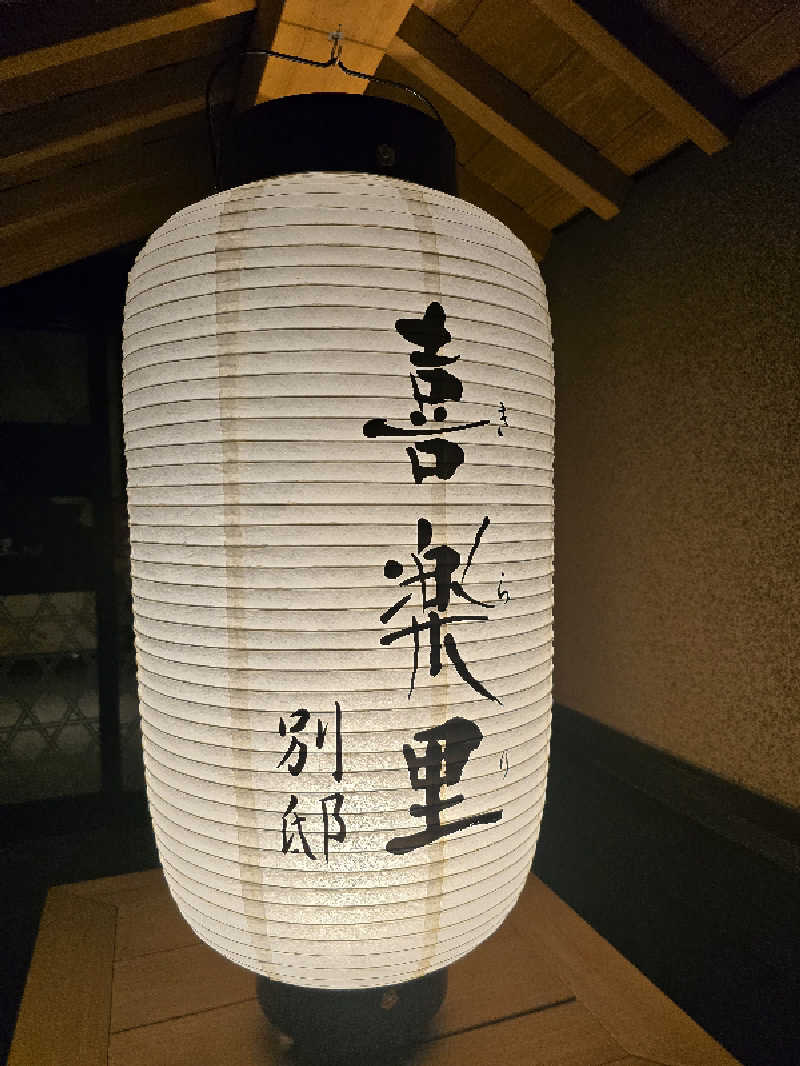 喜楽里
きらり
別邸